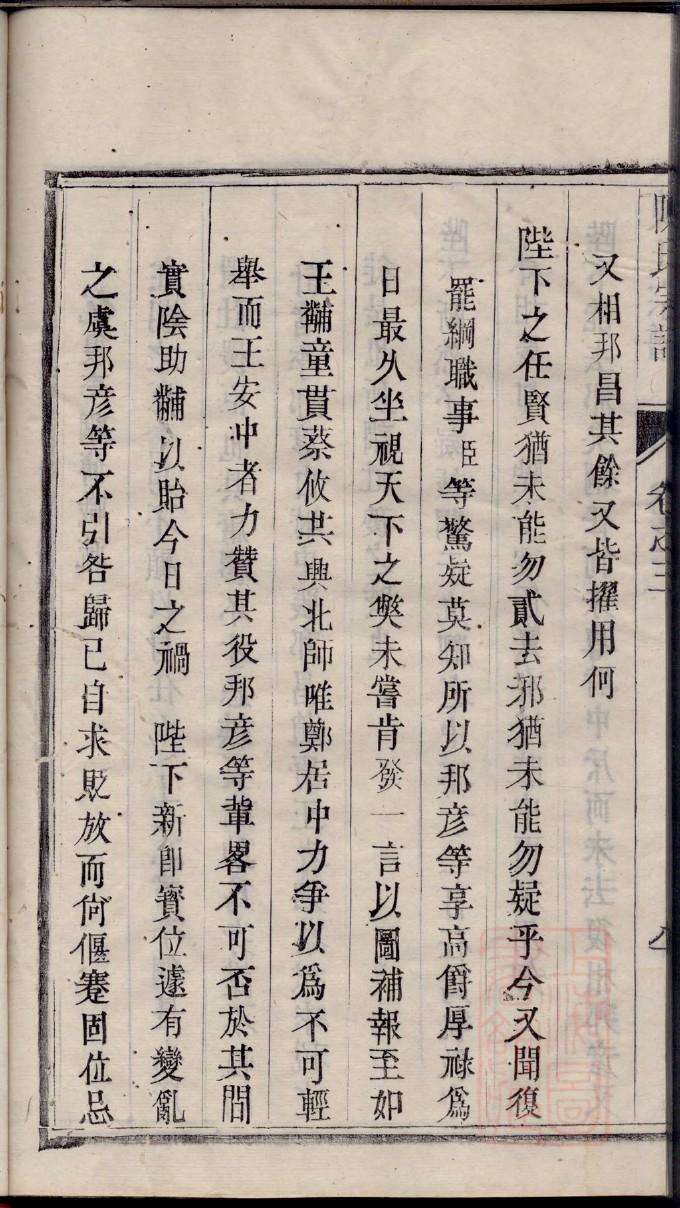 陳氏宗譜 卷之三
又相邦昌其餘又皆擢用何
陛下之任賢猶未能勿貳去邪猶未能勿疑乎今又聞復
罷綱職事臣等驚疑莫知所以邦彥等享高爵厚祿為
日最久坐視天下之獘未嘗肯發一言以圖補報至如
王黼童貫蔡攸共興北師唯鄭居中力爭以為不可輕
舉而王安中者力贊其役邦彥等輩畧不可否於其間
實陰助黼以貽今日之禍 陛下新卽寶位遽有變亂
之虞邦彥等不引咎歸已自求貶放而尚偃蹇固位忌